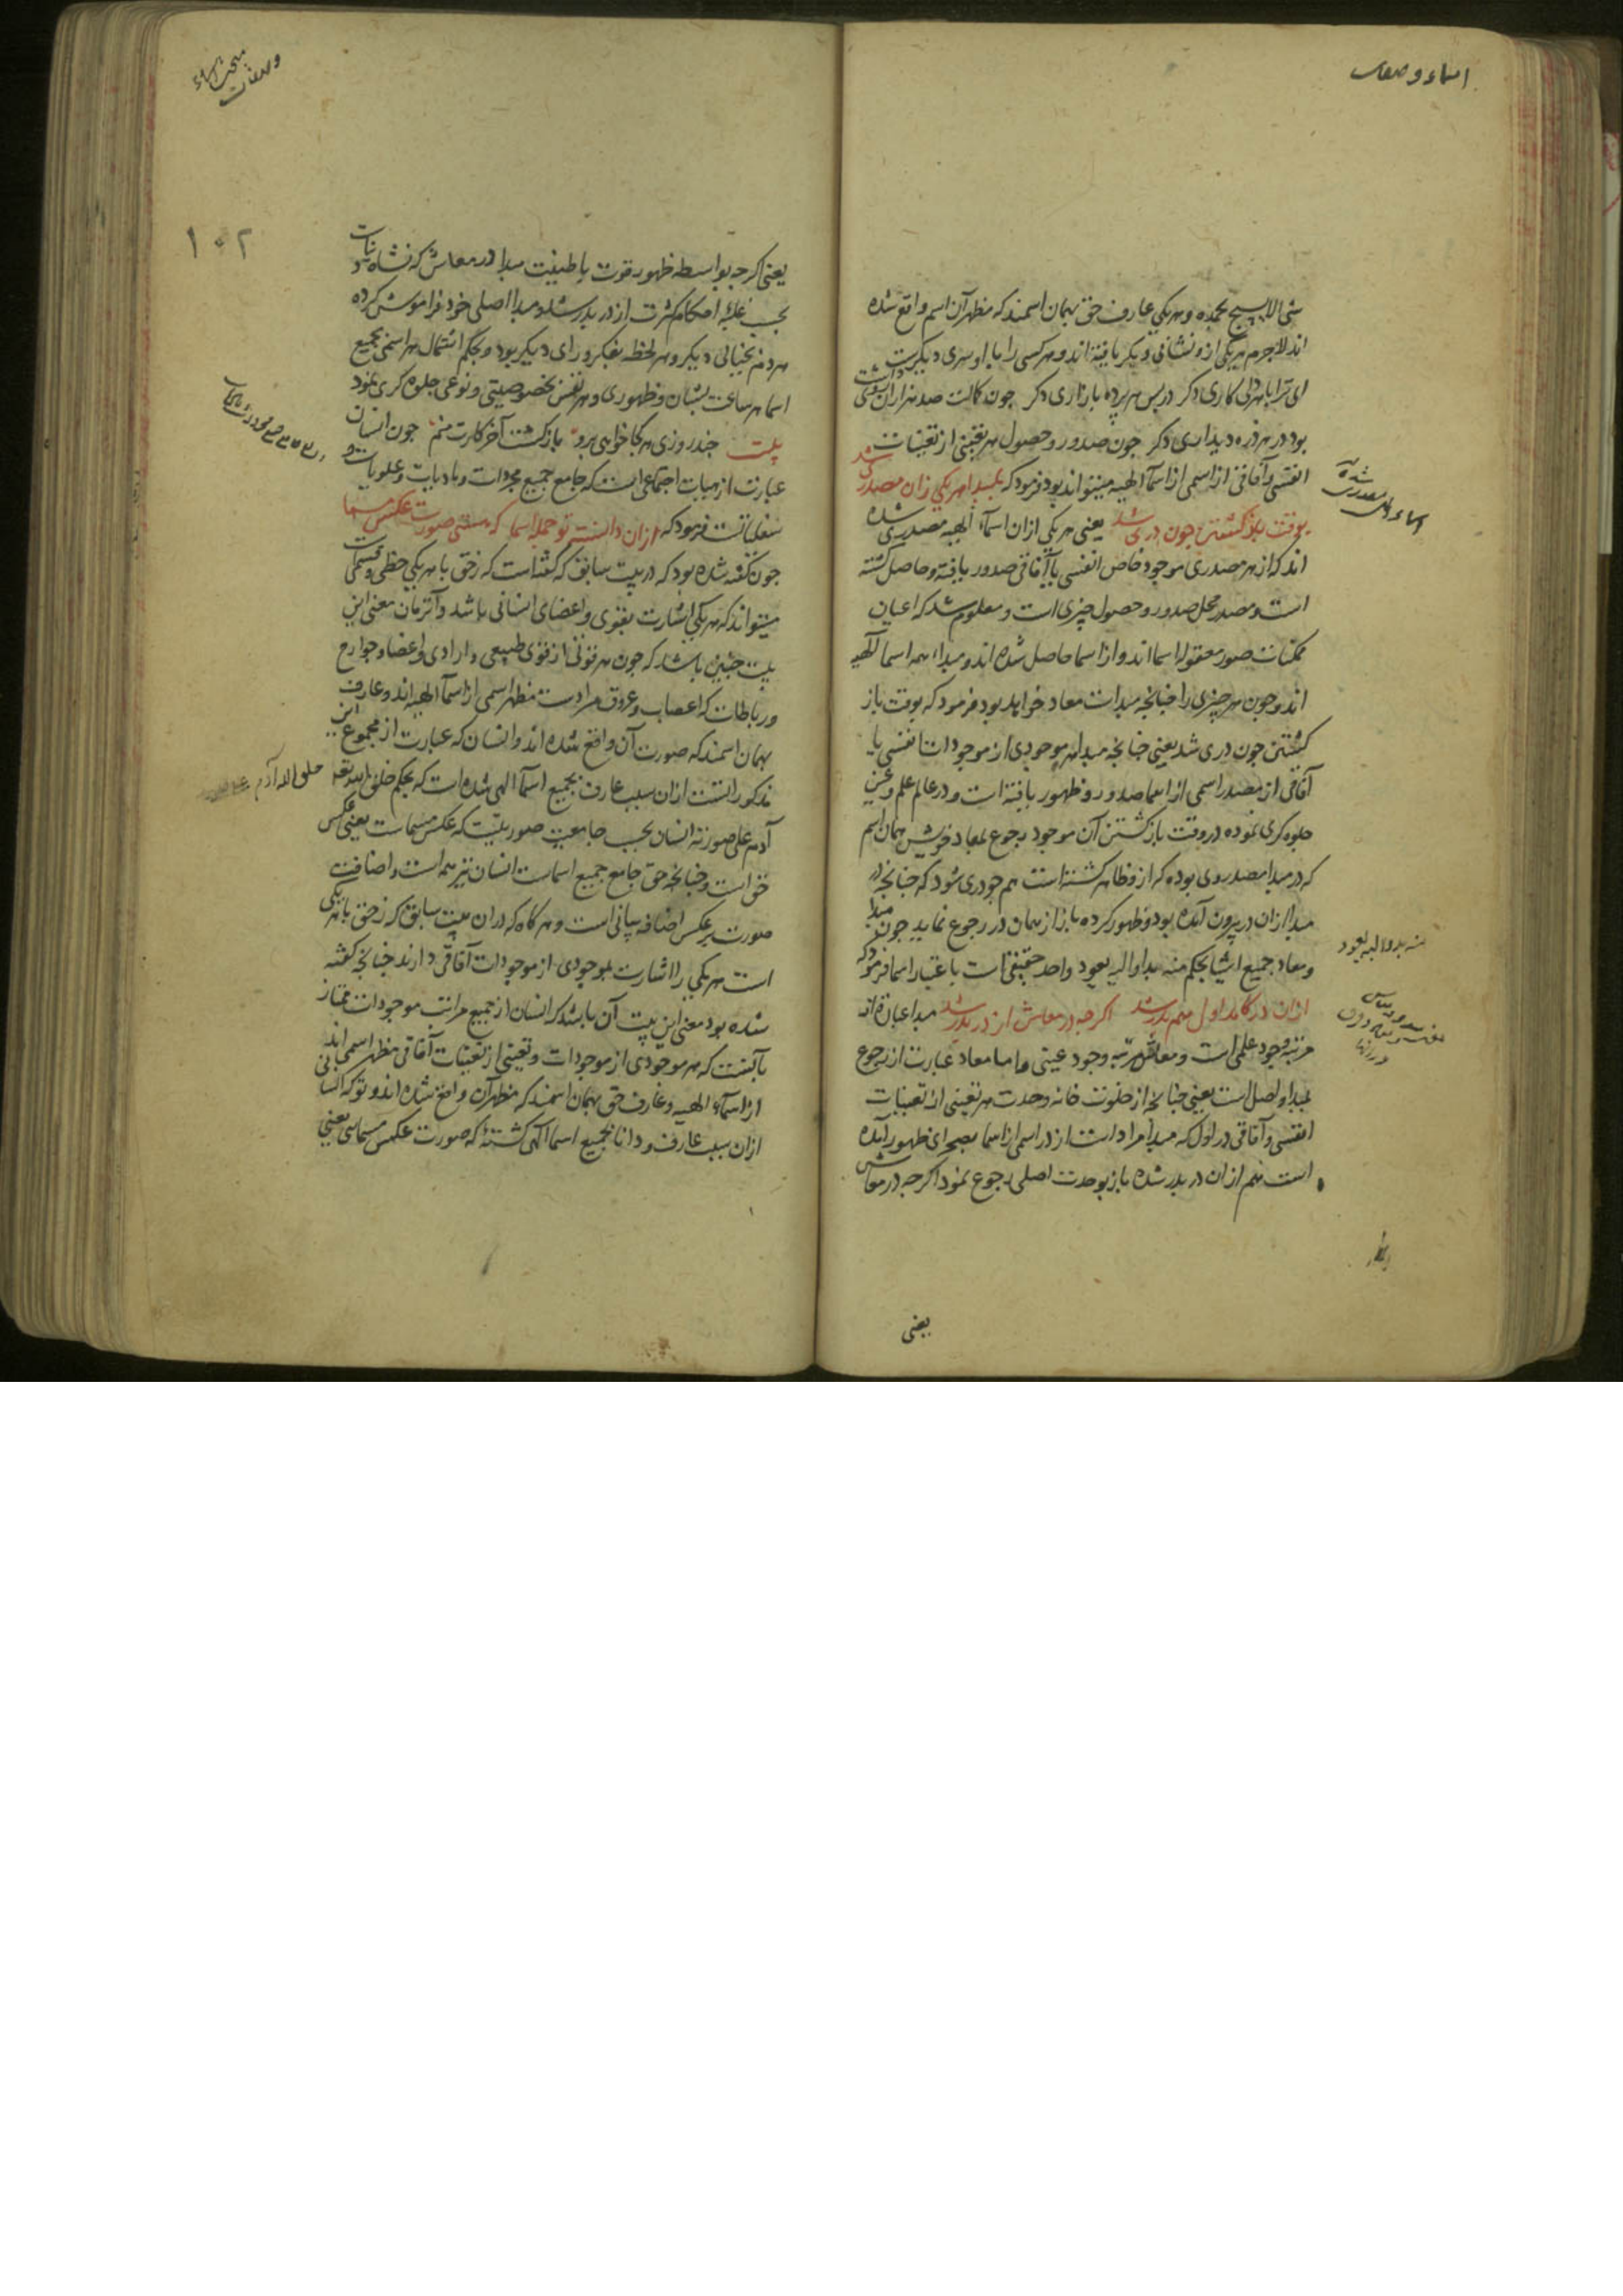 اسماء و صفات
شئ الا یسبح بحمده و هر یکی عارف حق بهمان اسمند که مظهر آن اسم واقع شده
اند لاجرم هر یکی ازو نشانی دیگر یافته اند و هر کسی را با او سری دیگرست
ای ترا با هر دلی کاری دکر در پس هر پرده بازاری دکر چون کمالت صد هزاران روی داشت
بود در هر ذره دیداری دکر چون صدور و حصول هر تعینی از تعینات
انفسی و آفاقی از اسمی از اسمآ الهیه میتواند بود فرمود که بمبدا هر یکی زان مصدری شد
بوقت بازکشتن چون دری شد یعنی هر یکی ازان اسمآء الهیه مصدری شده
اند که از هر مصدری موجود خاص انفسی یا آفاقی صدور یافته و حاصل کشته
است و مصدر محل صدور و حصول چیزی است و معلوم شد که اعیان
ممکنات صور معقوله اسما اند و از اسما حاصل شده اند و مبداء همه اسما آلهیه
اند و چون هر چیزی را چنانچه مبدات معاد خواهد بود فرمود که بوقت باز
کشتن چون دری شد یعنی چنانچه مبدا هر موجودی از موجودات انفسی یا
آفاقی از مصدر اسمی از اسما صدور و ظهور یافته است و در عالم علم و عین
جلوه کری نموده در وقت بازکشتن آن موجود رجوع بمعاد خویش همان اسم
که در مبدا مصدر وی بوده که از و ظاهر کشته است هم چو دری شود که چنانچه در
مبدا ازان در بیرون آمده بود و ظهور کرده باز از همان در رجوع نماید چون مبدا
و معاد جمیع اشیا بحکم منه بدا و الیه یعود واحد حقیقی است باعتبار اسما فرمود که
ازان در کامد اول هم بدر شد اکرچه در معاش از در بدر شد مبدا عبارة از
مرتبه وجود علمی است و معاش مرتبه وجود عینی و اما معاد عبارت از رجوع
بمبدا و اصل است یعنی چنانچه از خلوت خانه وحدت هر تعینی از تعینات
انفسی و آفاقی در اول که مبدا مراد است از در اسمی از اسما بصحرای ظهور آمده
است هم ازان در بدر شده باز بوحدت اصلی رجوع نمود اکرچه در معاش
منه بدا و الیه یعود
یعنی
مبحث اسماء
و صفات
۱۰۲
یعنی اکرچه بواسطه ظهور قوت باطنیت مبدا در معاش که نشاه دنیاست
بحسب غلبه احکام کثرت از در بدر شد و مبدا اصلی خود فراموش کرده
هر دم بخیالی دیکر و هر لحظه بفکر و رای دیکر بود و بحکم اشتمال هر اسمی بجمیع
اسما هر ساعت بشان و ظهوری و هر نفس بخصوصیتی و نوعی جلوه کری نمود
بیت چند روزی هر کجا خواهی برو بازکشت آخر کارت منم چون انسان
عبارت از هیات اجتماعی است که جامع جمیع مجردات و مادیات و علویات و
سفلیاتست فرمود که ازان دانسته تو جمله اسما که هستی صورت عکس مسما
چون کفته شده بود که در بیت سابق که کفته است که ز حق با هر یکی حظی و قسمیست
میتواند که هر یکی اشارت بقوی و اعضای انسانی باشد و آنزمان معنی این
بیت چنین باشد که چون هر قوتی از قوی طبیعی و ارادی و اعضا و جوارح
و رباطات که اعصاب و عروق مرادست مظهر اسمی از اسمآ الهیه اند و عارف
بهمان اسمند که صورت آن واقع شده اند و انسان که عبارت از مجموع این
مذکوراتست ازان سبب عارف بجمیع اسمآ الهی شده است که بحکم خلق الله تعه
آدم علی صورته انسان بحسب جامعیت صورتیست که عکس مسماست یعنی عکس
حق است و چنانچه حق جامع جمیع اسماست انسان نیز همه است و اضافت
صورت بر عکس اضافه بیانی است و هر کاه که دران بیت سابق که ز حق با هر یکی
است هر یکی را اشارت بموجودی از موجودات آفاقی دارند چنانچه کفته
شده بود معنی این بیت آن باشد که انسان از جمیع مراتب موجودات ممتاز
بآنست که هر موجودی از موجودات و تعینی از تعینات آفاقی مظهر اسمی اند
از اسمآء الهیه و عارف حق بهمان اسمند که مظهر آن واقع شده اند و تو که انسانی
ازان سبب عارف و دانا بجمیع اسما الهی کشتهٔ که صورت عکس مسمائی یعنی
خلق الله آدم علی